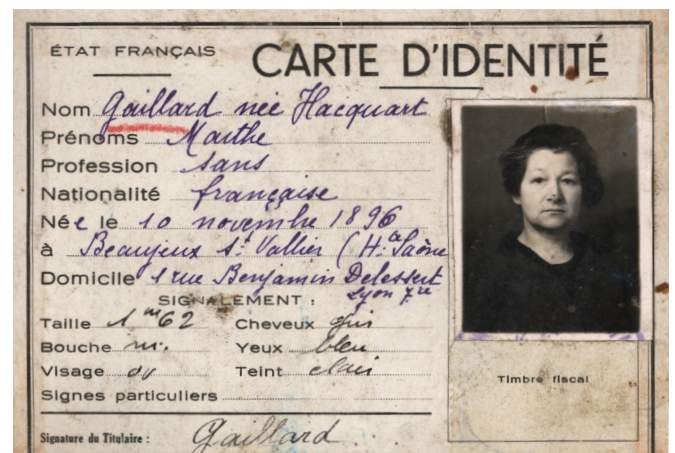 ÉTAT FRANÇAIS
CARTE D'IDENTITÉ
Nom Gaillard née Hacquart
Prénoms Marthe
Profession sans
Nationalité française
Née le 10 novembre 1896
à Beaujeux St Vallier (Hte Saône
Domicile 1 rue Benjamin Delessert
Lyon 7e
SIGNALEMENT :
Taille 1m62 Cheveux gris
Bouche m. Yeux bleu
Visage ov Teint clair
Signes particuliers
Timbre fiscal
Signature du Titulaire : Gaillard